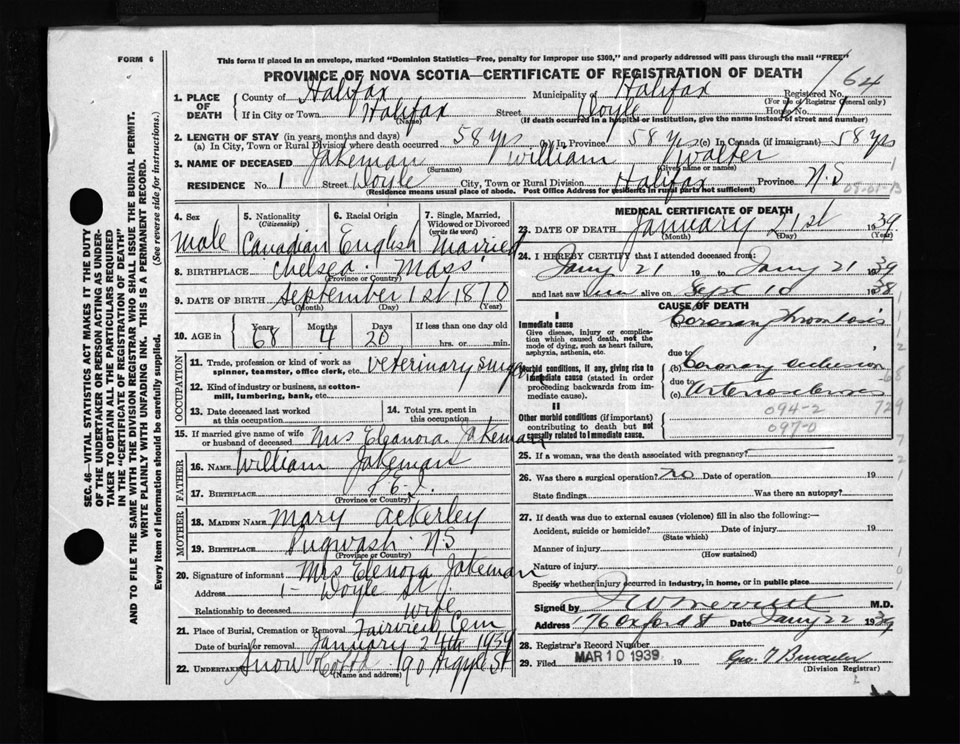 FORM 6
This form if placed in an envelope, marked "Dominion Statistics—Free, penalty for improper use $300," and properly addressed will pass through the mail "FREE"
PROVINCE OF NOVA SCOTIA—CERTIFICATE OF REGISTRATION OF DEATH
64
1. PLACE OF DEATH
County of Halifax Municipality of Halifax Registered No.
(For use of Registrar General only)
If in City or Town Halifax Street Doyle House No. 1
(Name) (If death occurred in a hospital or institution, give the name instead of street and number)
2. LENGTH OF STAY (in years, months and days)
(a) In City, Town or Rural Division where death occurred 58 yrs (b) In Province 58 yrs (c) In Canada (if immigrant) 58 yrs
3. NAME OF DECEASED Jakeman William Walter
(Surname) (Given name or names)
RESIDENCE No. 1 Street Doyle City, Town or Rural Division Halifax Province N.S
(Residence means usual place of abode. Post Office Address for residents in rural parts not sufficient)
4. Sex Male
5. Nationality (Citizenship) Canadian
6. Racial Origin English
7. Single, Married, Widowed or Divorced (write the word) Married
8. BIRTHPLACE Chelsea. Mass
(Province or Country)
9. DATE OF BIRTH September 1st 1870
(Month) (Day) (Year)
10. AGE in Years 68 Months 4 Days 20 If less than one day old hrs. or min.
OCCUPATION
11. Trade, profession or kind of work as spinner, teamster, office clerk, etc. Veterinary surgeon
12. Kind of industry or business, as cotton-mill, lumbering, bank, etc.
13. Date deceased last worked at this occupation
14. Total yrs. spent in this occupation
15. If married give name of wife or husband of deceased Mrs Eleanora Jakeman
FATHER
16. NAME William Jakeman
17. BIRTHPLACE P.E.I.
(Province or Country)
MOTHER
18. MAIDEN NAME Mary Ackerley
19. BIRTHPLACE Pugwash NS
(Province or Country)
20. Signature of informant Mrs Elenora Jakeman
Address 1- Doyle St
Relationship to deceased wife
21. Place of Burial, Cremation or Removal Fairview Cem
Date of burial or removal January 24th 1939
22. Undertaker Snow 190 Argyle St
(Name and address)
MEDICAL CERTIFICATE OF DEATH
23. DATE OF DEATH January 21st 1939
(Month) (Day) (Year)
24. I HEREBY CERTIFY that I attended deceased from:
Jany 21 19 to Jany 21 1939
and last saw him alive on Sept 10 1938
CAUSE OF DEATH
I
Immediate cause
Give disease, injury or complication which caused death, not the mode of dying, such as heart failure, asphyxia, asthenia, etc.
Coronary Thrombosis
Morbid conditions, if any, giving rise to immediate cause (stated in order proceeding backwards from immediate cause).
due to
(b) Coronary occlusion
due to
(c) Arteriosclerosis
094-2
097-0
II
Other morbid conditions (if important) contributing to death but not causally related to immediate cause.
25. If a woman, was the death associated with pregnancy?
26. Was there a surgical operation? no Date of operation 19
State findings Was there an autopsy?
27. If death was due to external causes (violence) fill in also the following:
Accident, suicide or homicide? Date of injury 19
(State which)
Manner of injury
(How sustained)
Nature of injury
Specify whether injury occurred in industry, in home, or in public place
Signed by M.D.
Address 176 Oxford St Date Jany 22 1939
28. Registrar's Record Number
29. Filed MAR 10 1939 19
(Division Registrar)
SEC. 46—VITAL STATISTICS ACT MAKES IT THE DUTY
OF THE UNDERTAKER OR PERSON ACTING AS UNDERTAKER TO OBTAIN ALL THE PARTICULARS REQUIRED
IN THE "CERTIFICATE OF REGISTRATION OF DEATH"
AND TO FILE THE SAME WITH THE DIVISION REGISTRAR WHO SHALL ISSUE THE BURIAL PERMIT.
WRITE PLAINLY WITH UNFADING INK. THIS IS A PERMANENT RECORD.
Every item of information should be carefully supplied. (See reverse side for instructions.)